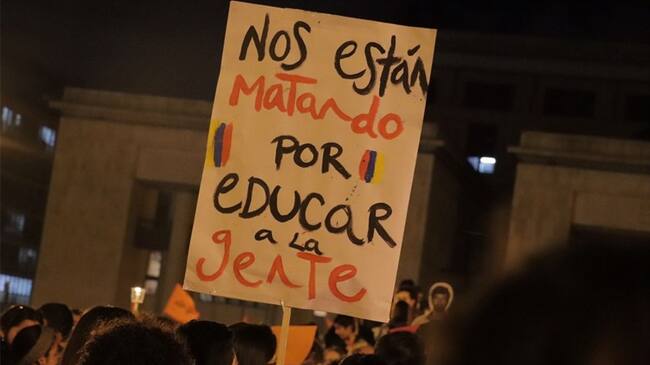 Nos están
Matando
POR
EDUCAR
a la
gente